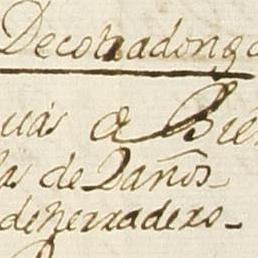 Decobadonga
uas a Bie
las de Daños
de herradero